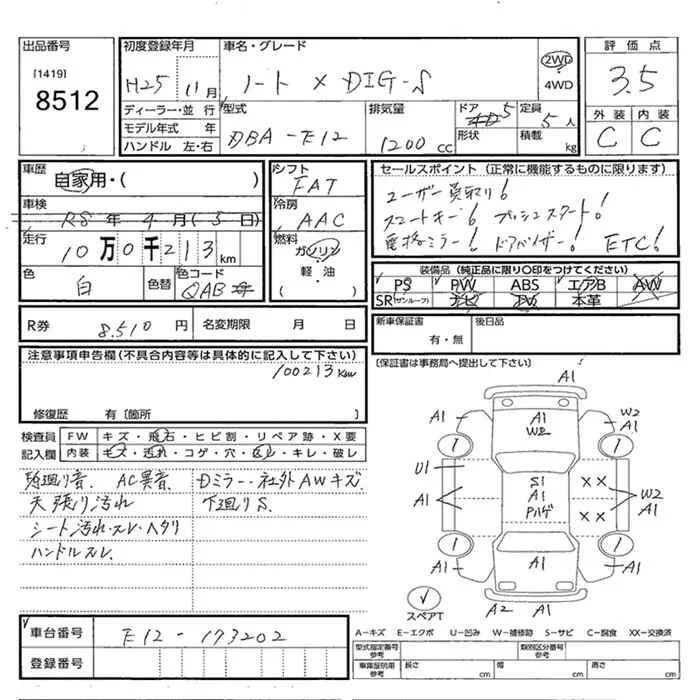 出品番号
[1419]
8512
初度登録年月
H25年 11月
車名・グレード
ノート X DIG-S
2WD
4WD
評価点
3.5
外装 内装
C C
ディーラー・並行
モデル年式 年
ハンドル 左・右
型式
DBA-E12
排気量
1200 CC
ドア 5
形状
定員
5人
積載
kg
車歴
自家用・( )
車検
R8年 4月(5日)
走行
10万0千213km
色
白
色替
色コード
QAB
シフト
FAT
冷房
AAC
燃料
ガソリン
軽・油
( )
セールスポイント(正常に機能するものに限ります)
ユーザー買取り!
スマートキー! プッシュスタート!
電格ミラー! ドアバイザー! ETC!
装備品(純正品に限り○印をつけてください)
PS PW ABS エアB AW
SR(サンルーフ) ナビ TV 本革
R券 8.510円
名変期限 月 日
新車保証書
有・無
後日品
(保証書は事務局へ提出して下さい)
注意事項申告欄(不具合内容等は具体的に記入して下さい)
100213km
修復歴 有〔箇所 〕
検査員 FW キズ・飛石・ヒビ割・リペア跡・X要
記入欄 内装 キズ・汚れ・コゲ・穴・スレ・キレ・破レ
AC異音、Dミラー・社外AWキズ
天張り汚れ 下廻りS、
シート汚れ・スレ・ヘタリ
ハンドルスレ、
A1
A1 A1 W2 W2
A1
U1 S1
A1 A1 ×× W2
Pハゲ ×× A1
A1 A1 A1
スペアT
A2 A1
車台番号 E12-173202
登録番号
A-キズ E-エクボ U-凹み W-補修跡 S-サビ C-腐食 XX-交換済
型式指定番号 参考
類別区分番号 参考
車庫証明用 参考 長さ cm 幅 cm 高さ cm